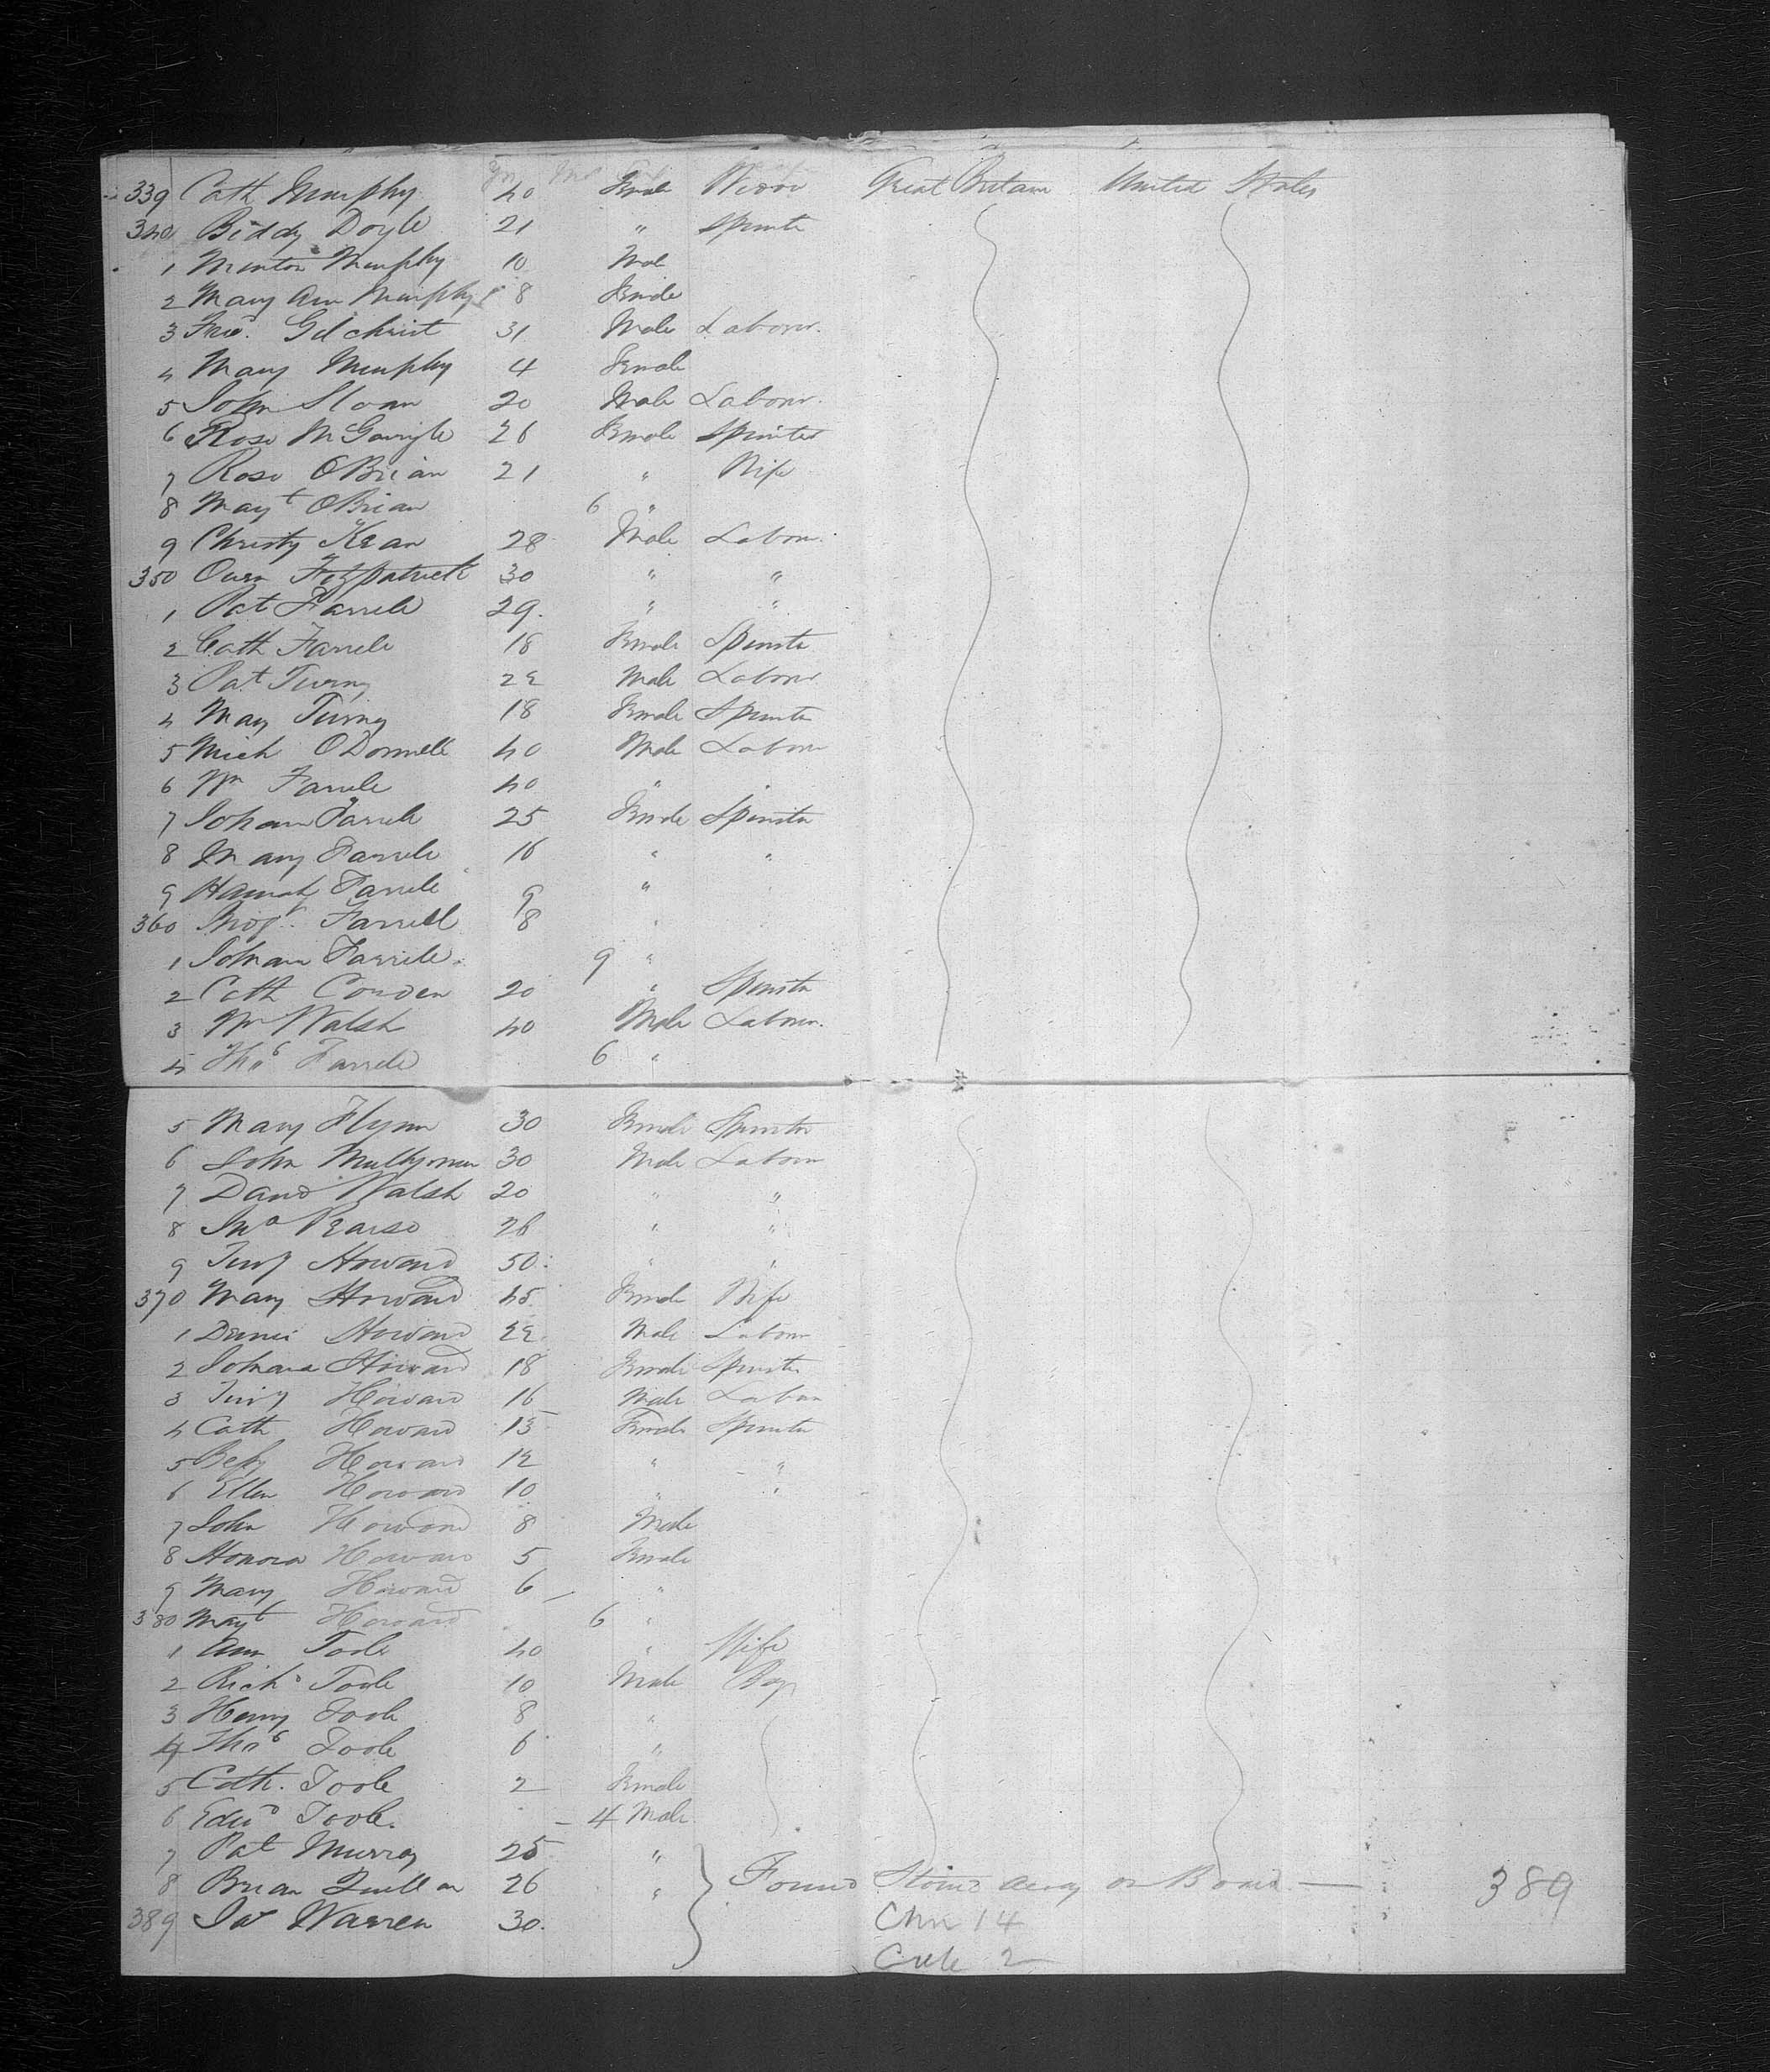 Yrs Mos
339 Cath Murphy 40 Female Widow Great Britain United States
340 Biddy Doyle 21 " Spinster
1 Murphy 10 Male
2 Mary Ann Murphy 8 Female
3 Gilchrist 31 Male Labour.
4 Mary Murphy 4 Female
5 John Sloan 20 Male Labour.
6 Rose McGarigle 26 Female Spinster
7 Rose OBrian 21 " Wife
8 Mayt OBrian 6 "
9 Christy Kean 28 Male Labour.
350 Owen Fitzpatrick 30 " "
1 Pat Farrele 29. " "
2 Cath Farrele 18 Female Spinster
3 Pat 22 Male Labour
4 Mary 18 Female Spinster
5 Mich ODonnell 40 Male Labour
6 Wm Farrele 40 " "
7 Johan Farrele 25 Female Spinster
8 Mary Farrele 16 " "
9 Hannah Farrele 9 "
360 Farrell 8 "
1 Johan Farrele 9 "
2 Cath Conden 20 " Spinster
3 Wm Walsh 40 Male Labour.
4 Thos Farrele 6 "
5 Mary Flynn 30 Female Spinster
6 John 30 Male Labour
7 David Walsh 20 " "
8 Jno Pearse 26 " "
9 Timy Howard 50 " "
370 Mary Howard 45 Female Wife
1 Dennis Howard 22 Male Labour
2 Johana Howard 18 Female Spinster
3 Timy Howard 16 Male Labour
4 Cath Howard 15 Female Spinster
5 Betsy Howard 12 " "
6 Ellen Howard 10 " "
7 John Howard 8 Male
8 Honora Howard 5 Female
9 Mary Howard 6 "
380 Mayt Howard 6 "
1 Ann Toole 40 " Wife
2 Richd Toole 10 Male Boy
3 Henry Toole 8 "
4 Thos Toole 6 "
5 Cath. Toole 2 Female
6 Edwd Toole. 4 Male
7 Pat Murray 25 "
8 Brian Quillan 26 " Found Stowed away on Board — 389
389 Jas Warren 30. Chn 14
2